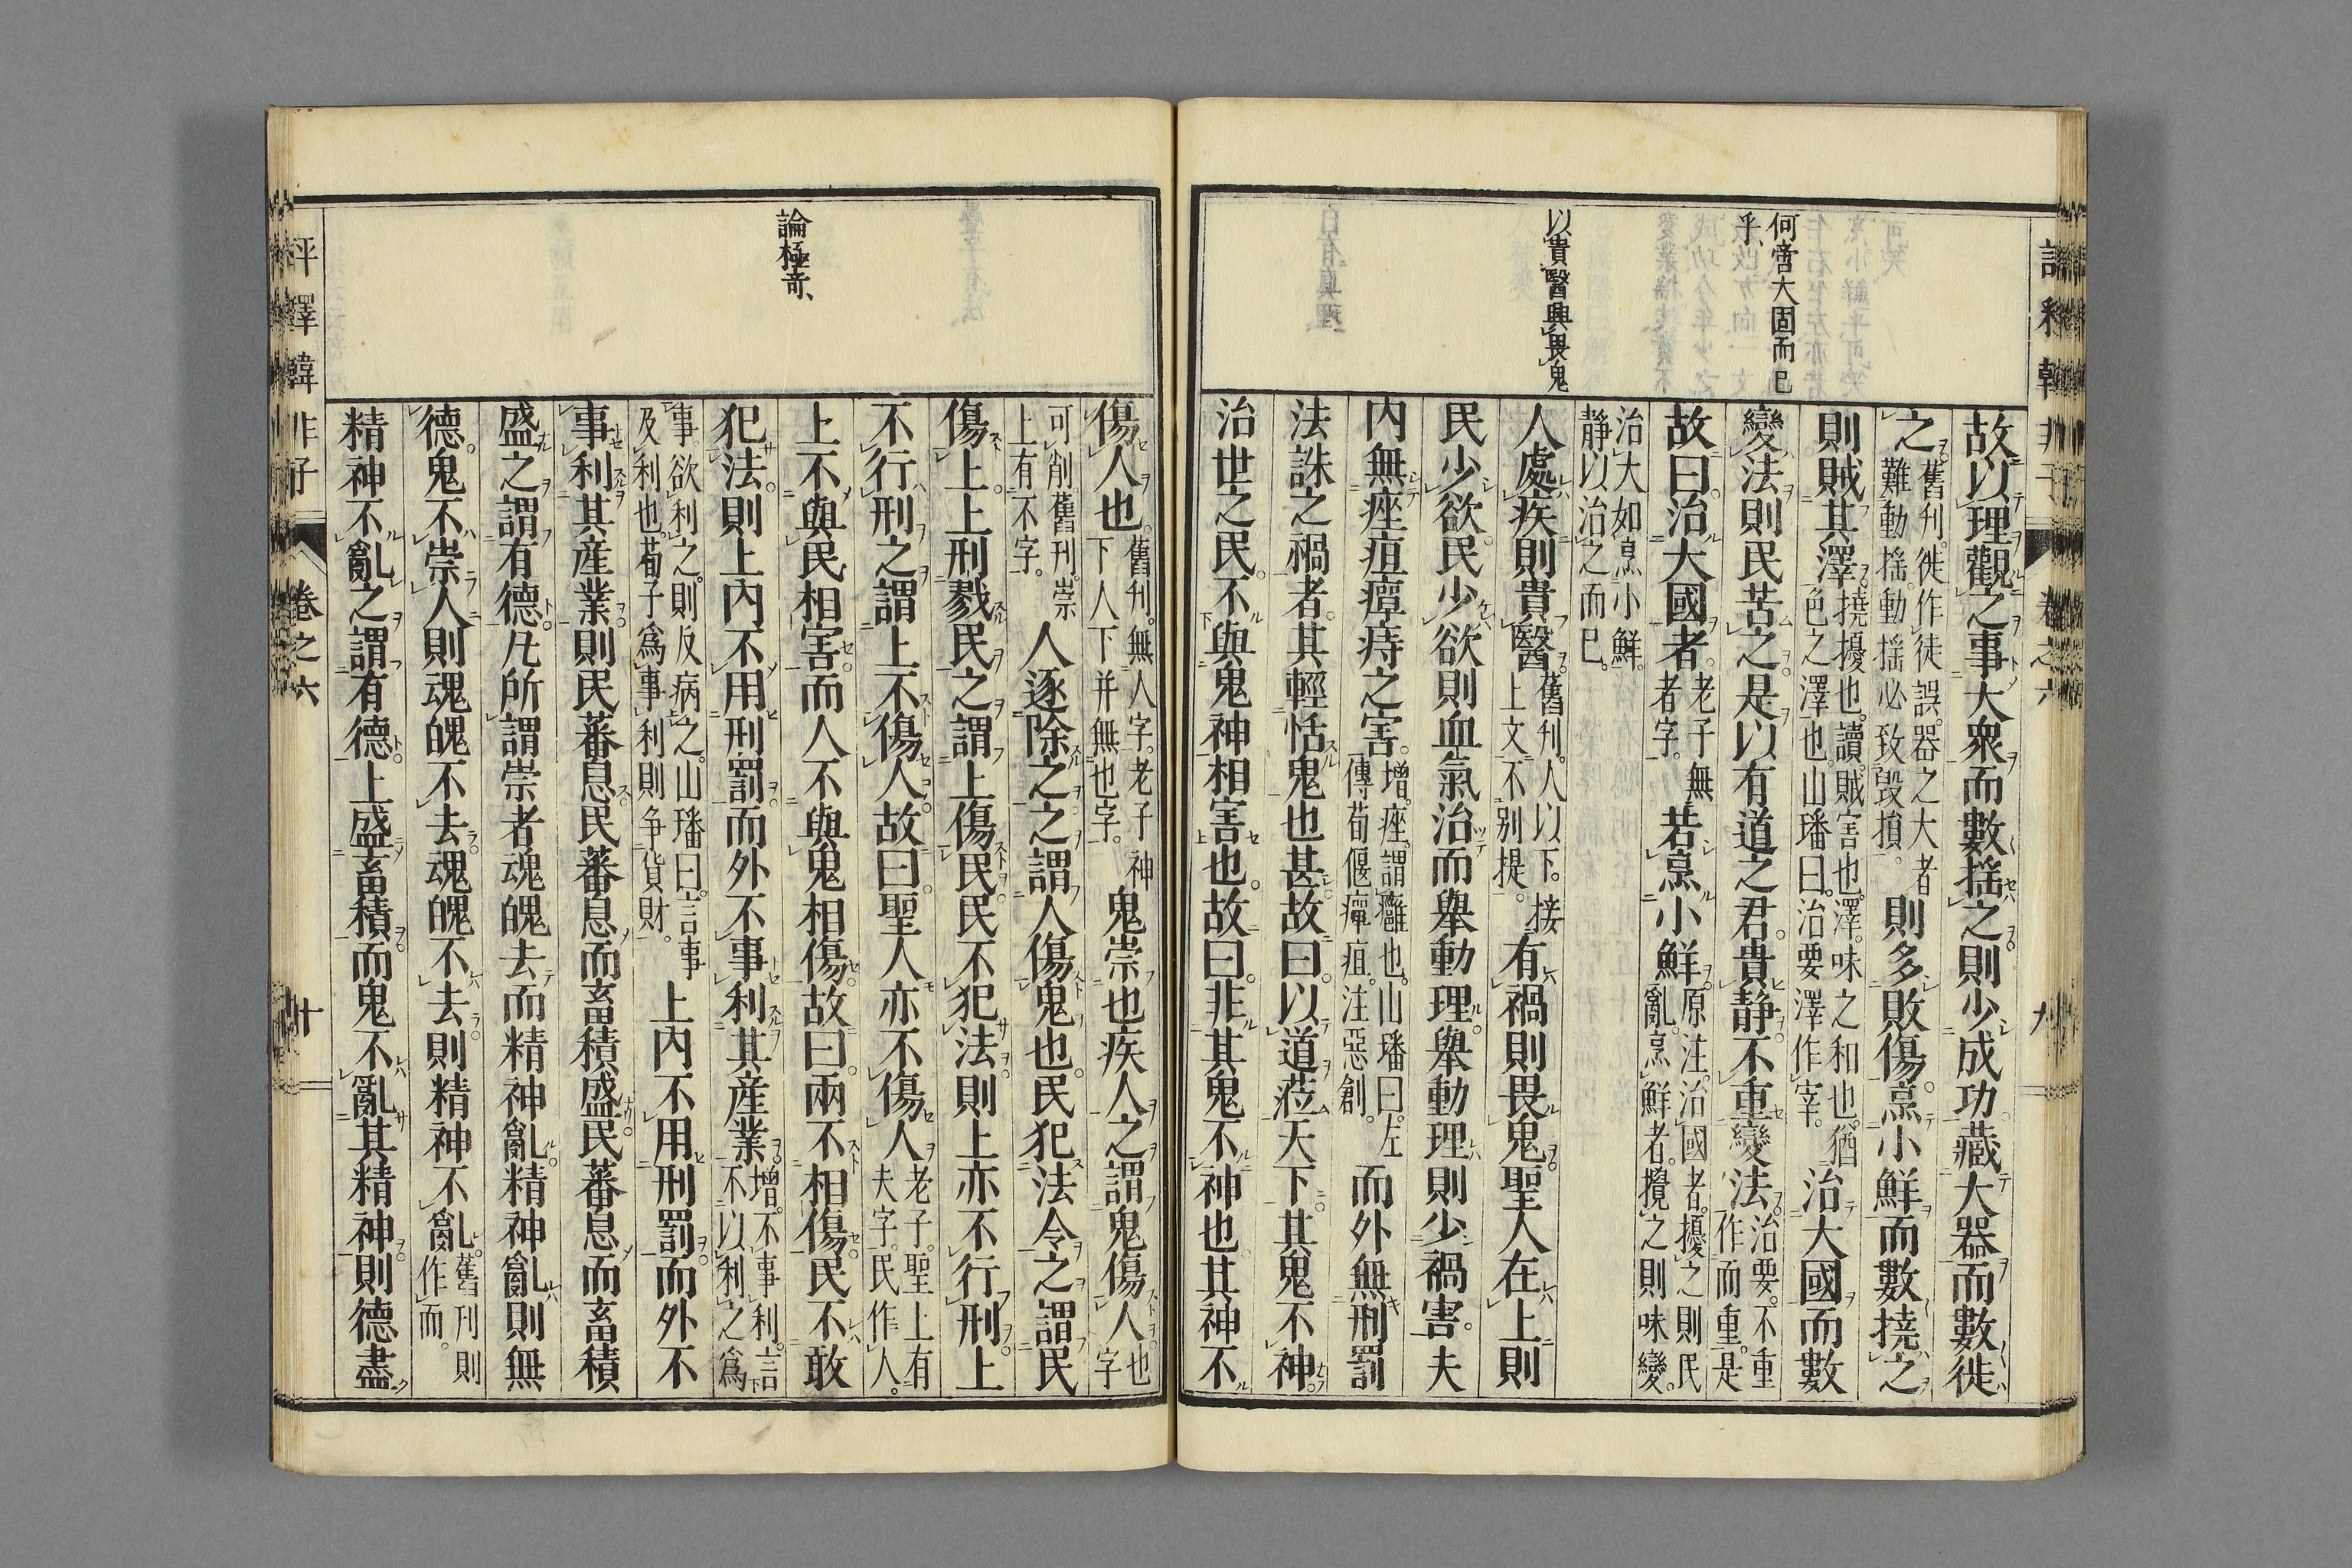 何啻大固而已
乎、
以貴醫興畏鬼
故以理觀之事大衆而數搖之則少成功藏大器而數徙
之舊刋。徙作徒誤。器之大者難動搖。動搖必致毀損。則多敗傷。烹小鮮而數撓之
則賊其澤。撓擾也。讀賊害也。澤。味之和也。猶色之澤也。山璠曰。治要澤作宰。治大國而數
變法則民苦之。是以有道之君。貴静。不重變法。治要。不重作而重。是
故曰。治大國者。老子無者字。若烹小鮮。原注。治國者。擾之則民亂。烹鮮者。攪之則味變。
治大如烹小鮮。静以治之而已。
人處疾則貴醫。舊刋。人以下。接上文。不别提。有禍則畏鬼。聖人在上則
民少欲。民少欲則血氣治而舉動理。舉動理則少禍害。夫
内無痤疽癉痔之害。増。痤。謂癰也。山璠曰。左傳荀偃癉疽。注惡創。而外無刑罰
法誅之禍者。其輕恬鬼也甚。故曰。以道莅天下。其鬼不神。
治世之民。不與鬼神相害也。故曰。非其鬼不神也其神不
評釋韓非子
卷之六
論極竒、
傷人也。舊刋。無人字。老子神下人下并無也字。鬼祟也疾人之謂鬼傷人。也字
可削舊刋。祟上有不字。人逐除之之謂人傷鬼也。民犯法令之謂民
傷上。上刑戮民之謂上傷民。民不犯法。則上亦不行刑。上
不行刑之謂上不傷人。故曰。聖人亦不傷人老子。聖上有夫字。民作人。
上不與民相害。而人不與鬼相傷。故曰。兩不相傷。民不敢
犯法。則上内不用刑罰。而外不事利其産業。増。不事利。言不以利之爲
事欲利之。則反病之。山璠曰。言事及利也。荀子爲事利則争貨財。上内不用刑罰。而外不
事利其産業。則民蕃息。民蕃息而畜積盛。民蕃息而畜積
盛之謂有德。凡所謂祟者魂魄去而精神亂。精神亂則無
德。鬼不祟人則魂魄不去。魂魄不去。則精神不亂。舊刋則作而。
精神不亂之謂有德。上盛畜積。而鬼不亂其精神。則德盡
評釋韓非子
卷之六
十